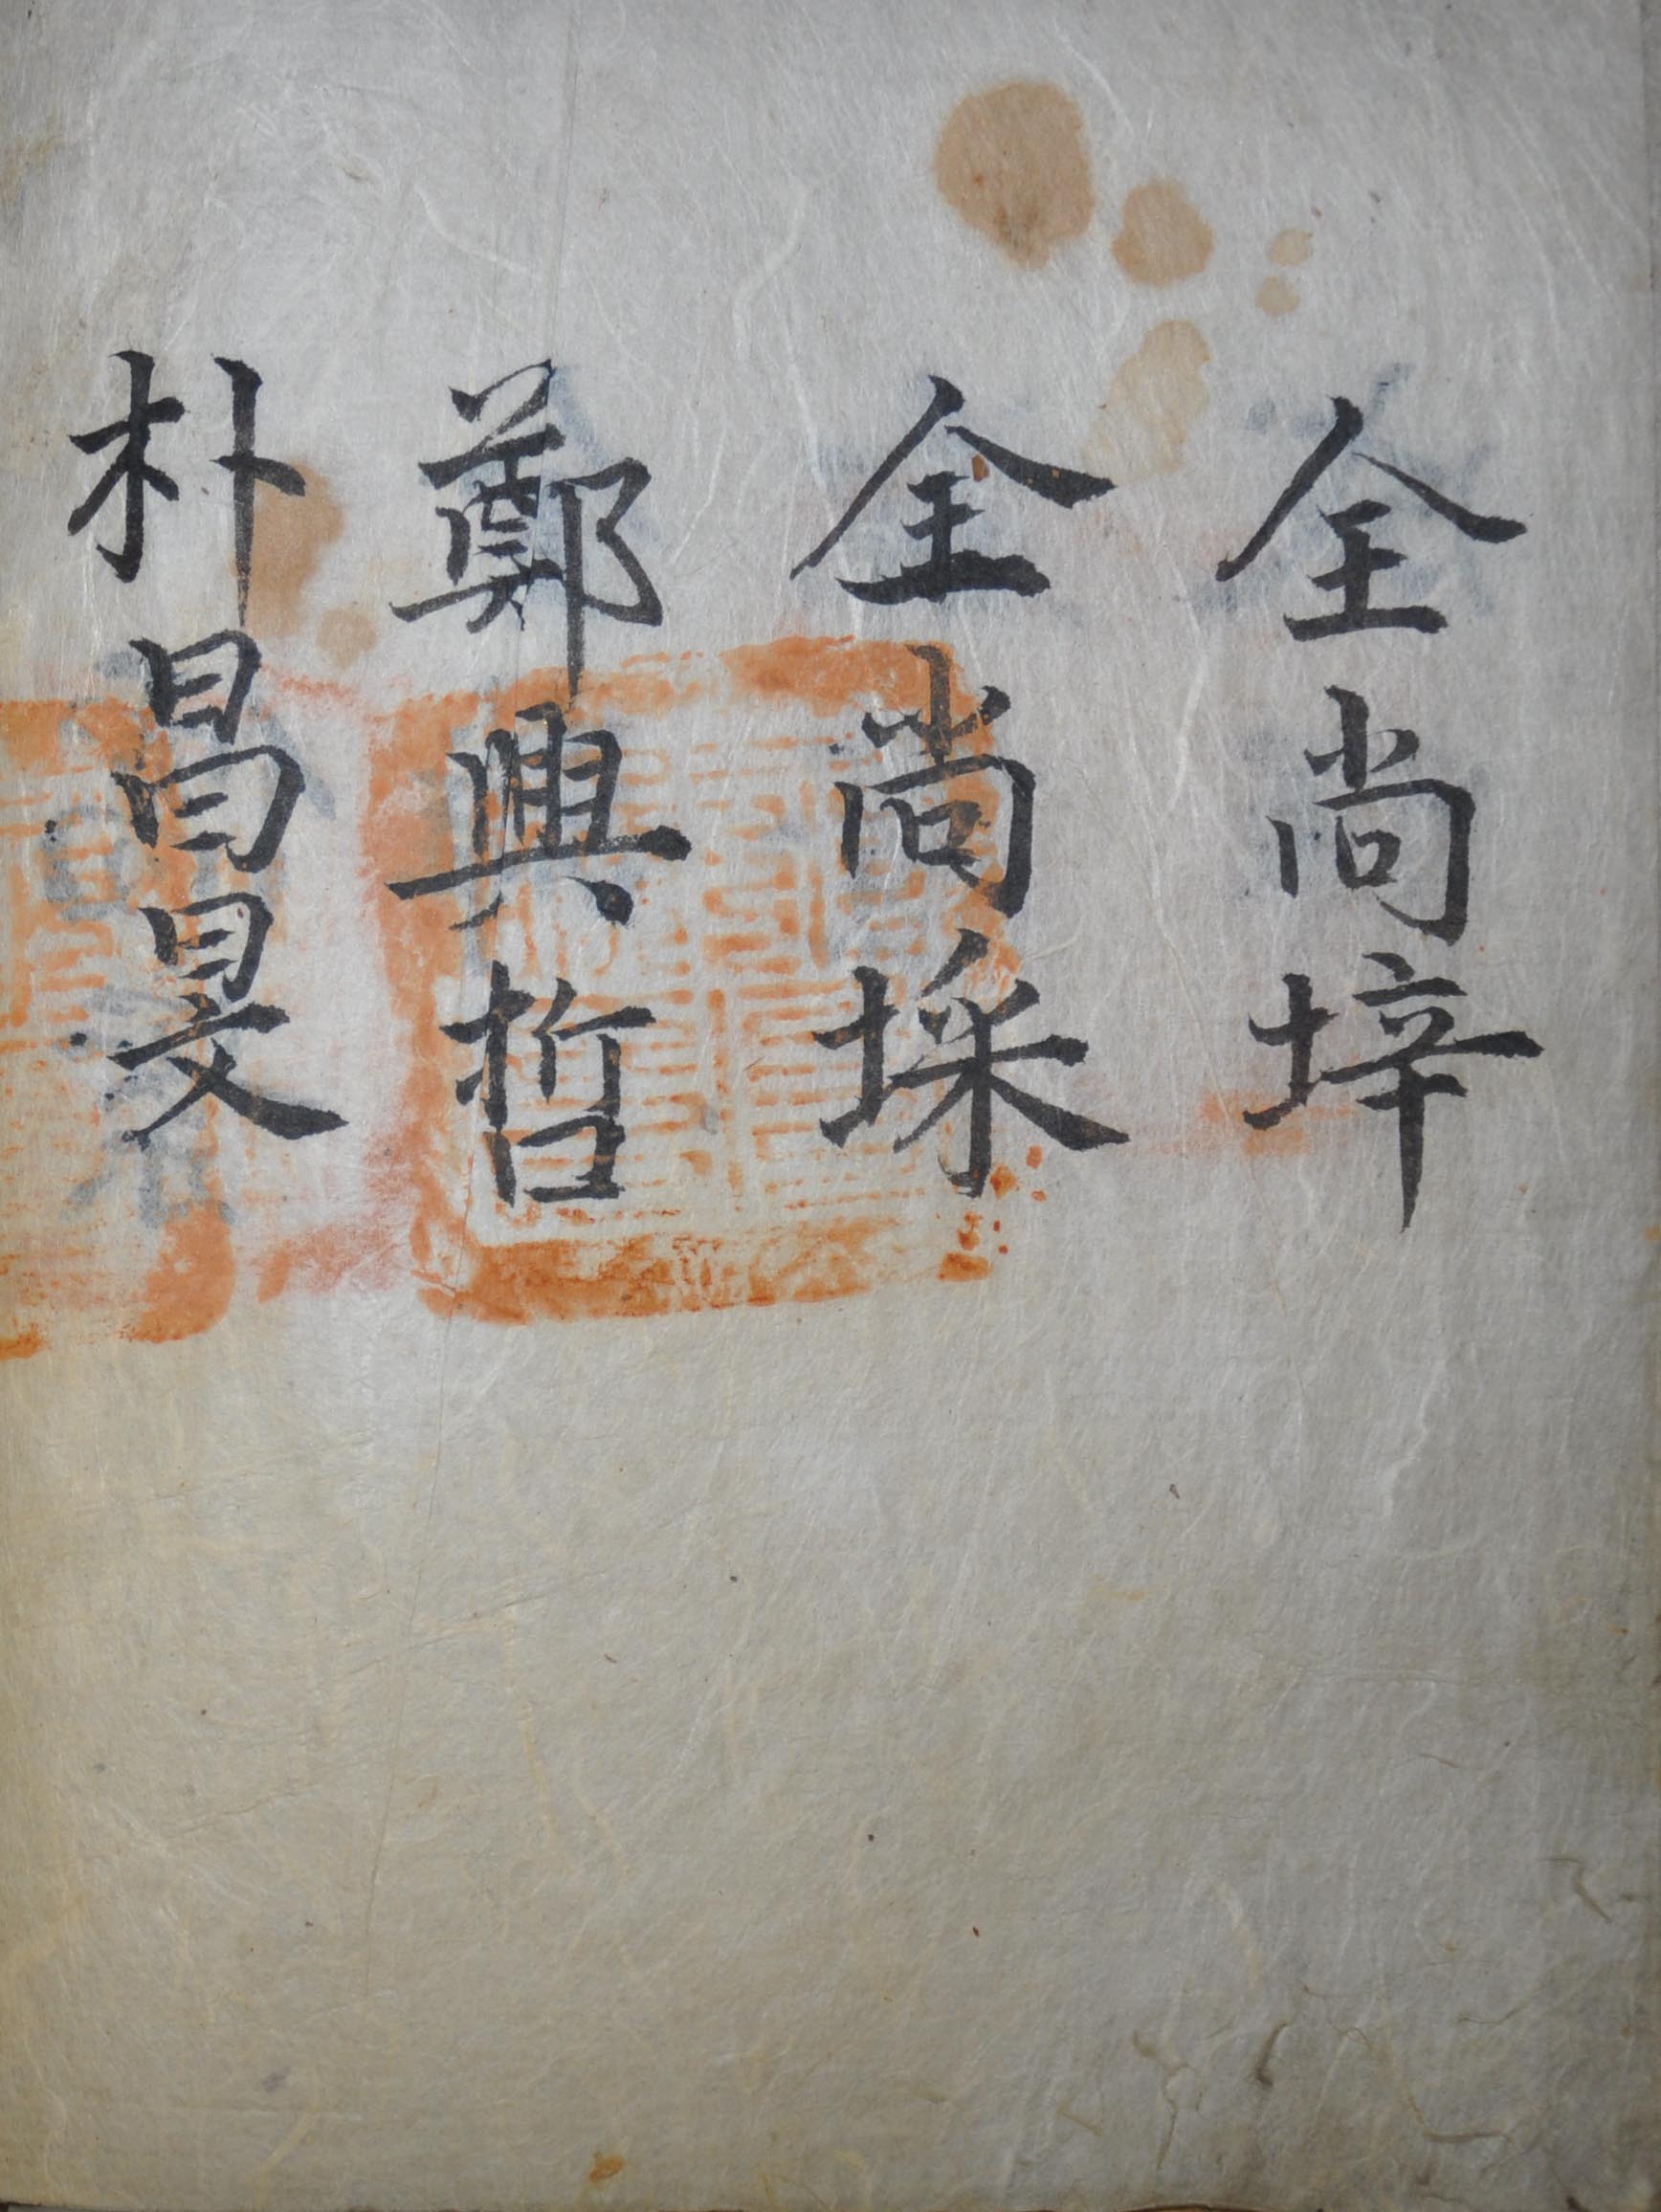 全尚垶
全尚埰
鄭興哲
朴昌旻